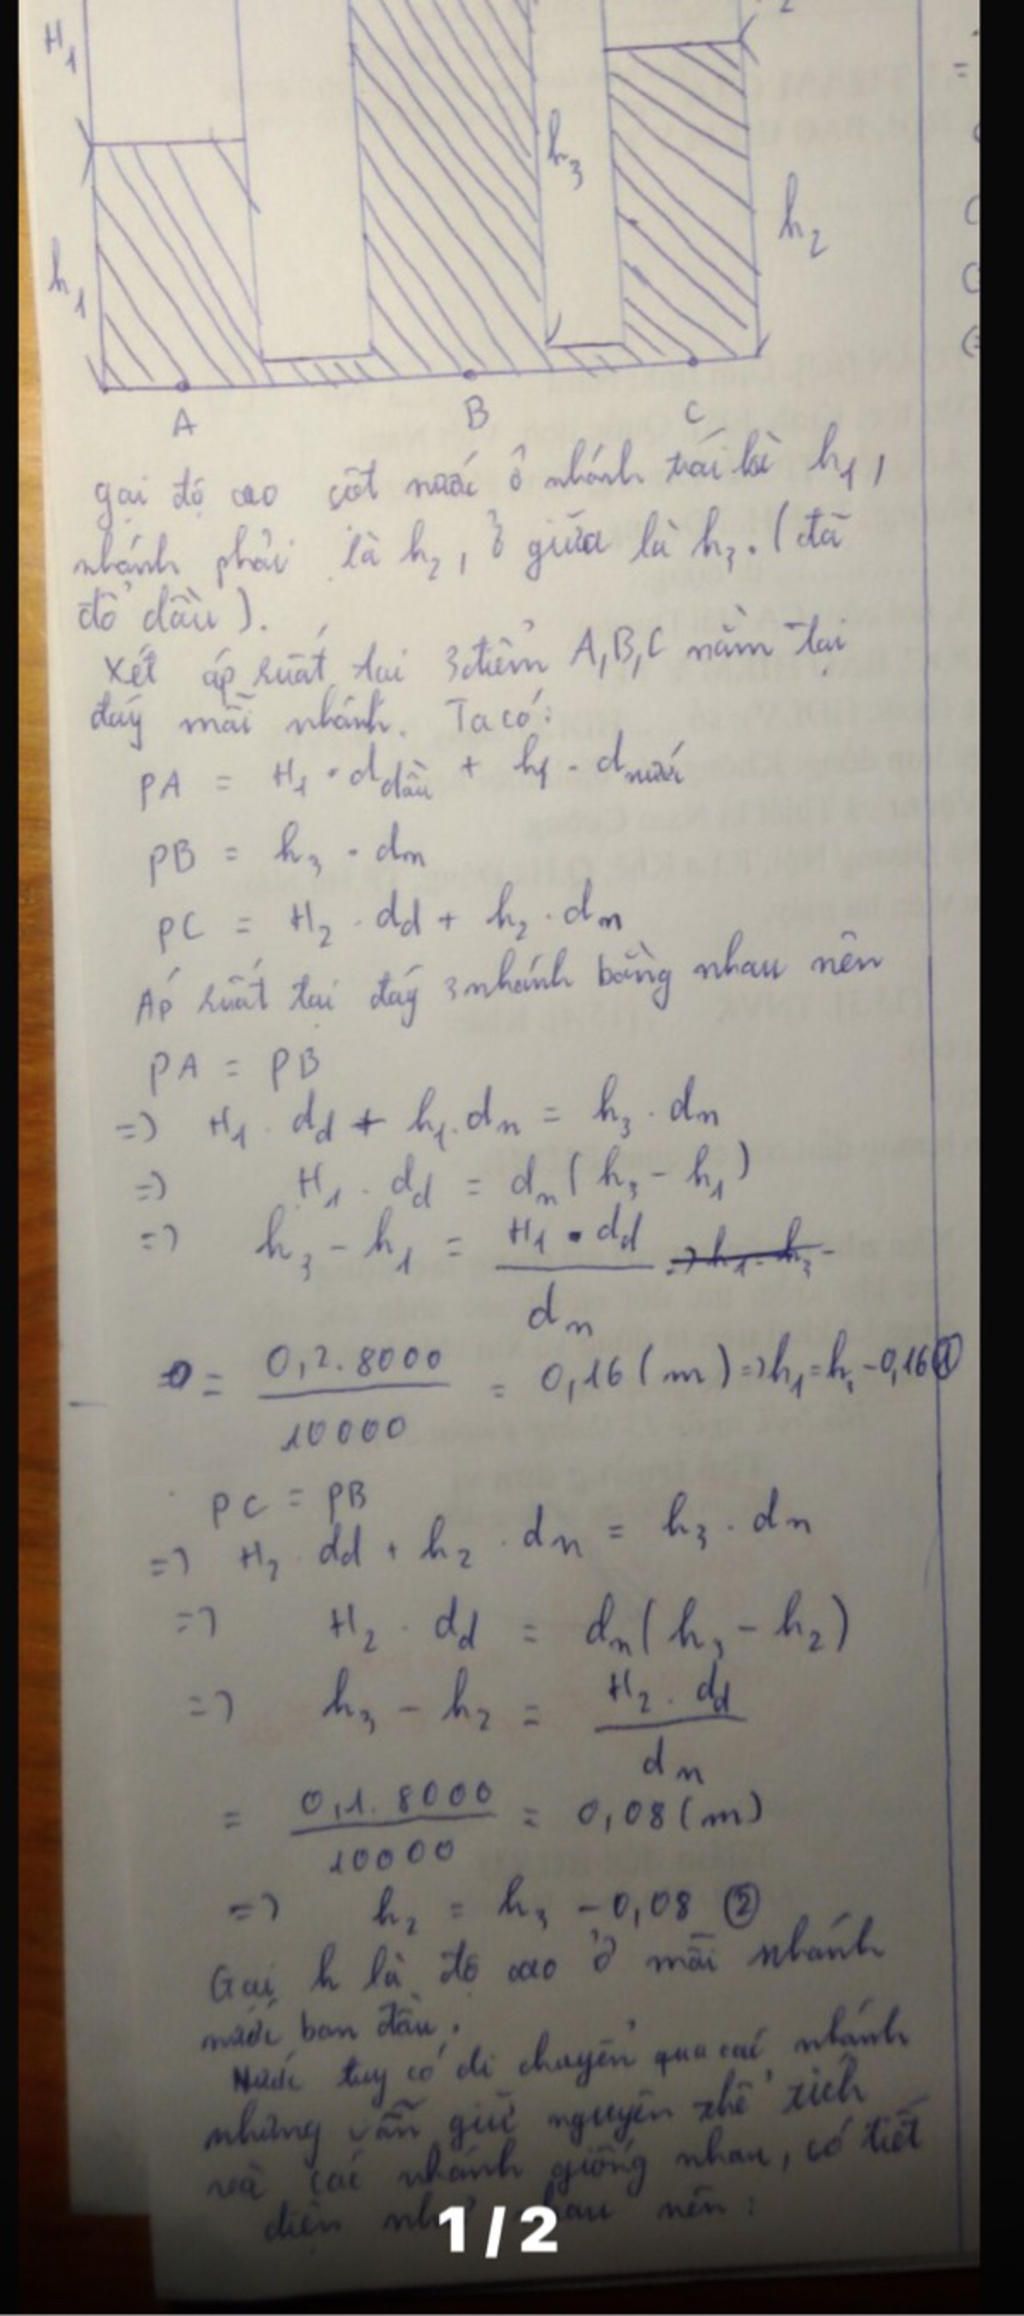 H₁
2
h₃
h₂
h₁
A B C
gọi độ cao cột nước ở nhánh trái là h₁,
nhánh phải là h₂, ở giữa là h₃. (đã
đổ dầu).
Xét áp suất tại 3 điểm A, B, C nằm tại
đáy mỗi nhánh. Ta có:
pA = H₁ . d dầu + h₁ . d nước
pB = h₃ . dn
pC = H₂ . dd + h₂ . dn
Áp suất tại đáy 3 nhánh bằng nhau nên
pA = pB
=> H₁ . dd + h₁ . dn = h₃ . dn
=> H₁ . dd = dn (h₃ - h₁)
=> h₃ - h₁ = H₁ . dd / dn
= 0,2 . 8000 / 10000 = 0,16 (m) => h₁ = h₃ - 0,16 ①
pC = pB
=> H₂ . dd + h₂ . dn = h₃ . dn
=> H₂ . dd = dn (h₃ - h₂)
=> h₃ - h₂ = H₂ . dd / dn
= 0,1 . 8000 / 10000 = 0,08 (m)
=> h₂ = h₃ - 0,08 ②
Gọi h là độ cao ở mỗi nhánh
nước ban đầu.
Nước tuy có di chuyển qua các nhánh
nhưng vẫn giữ nguyên thể tích
mà các nhánh giống nhau, có tiết
diện nên:
1/2